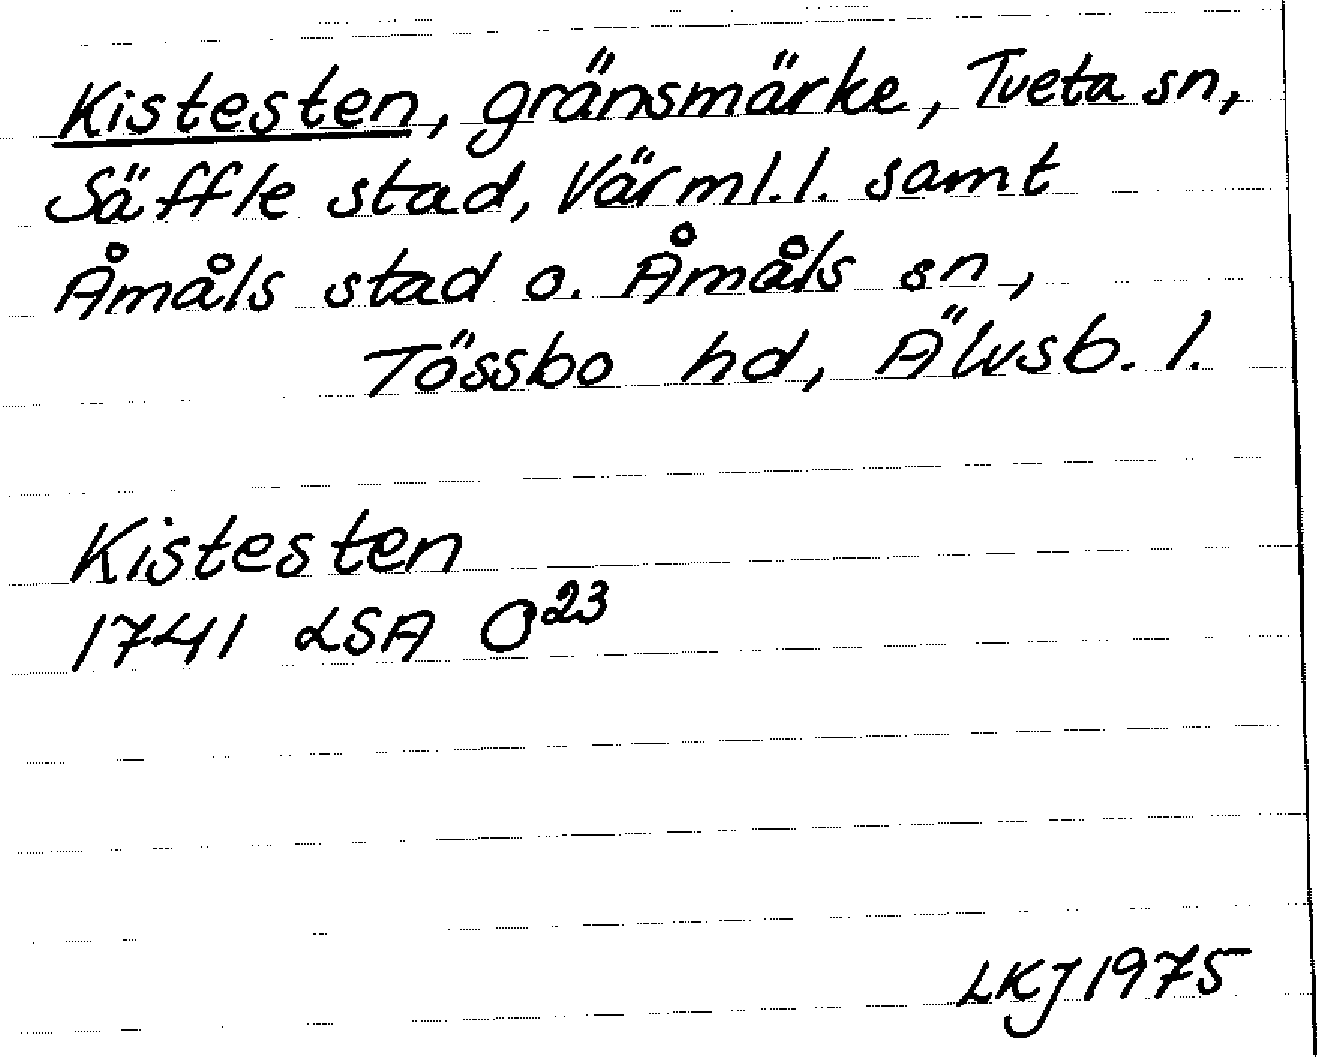 Kistesten, gränsmärke, Tveta sn,
Säffle stad, Värml.l. samt
Åmåls stad o. Åmåls sn,
Tössbo hd, Älvsb. l.
Kistesten
1741 LSA O²³
LKJ 1975